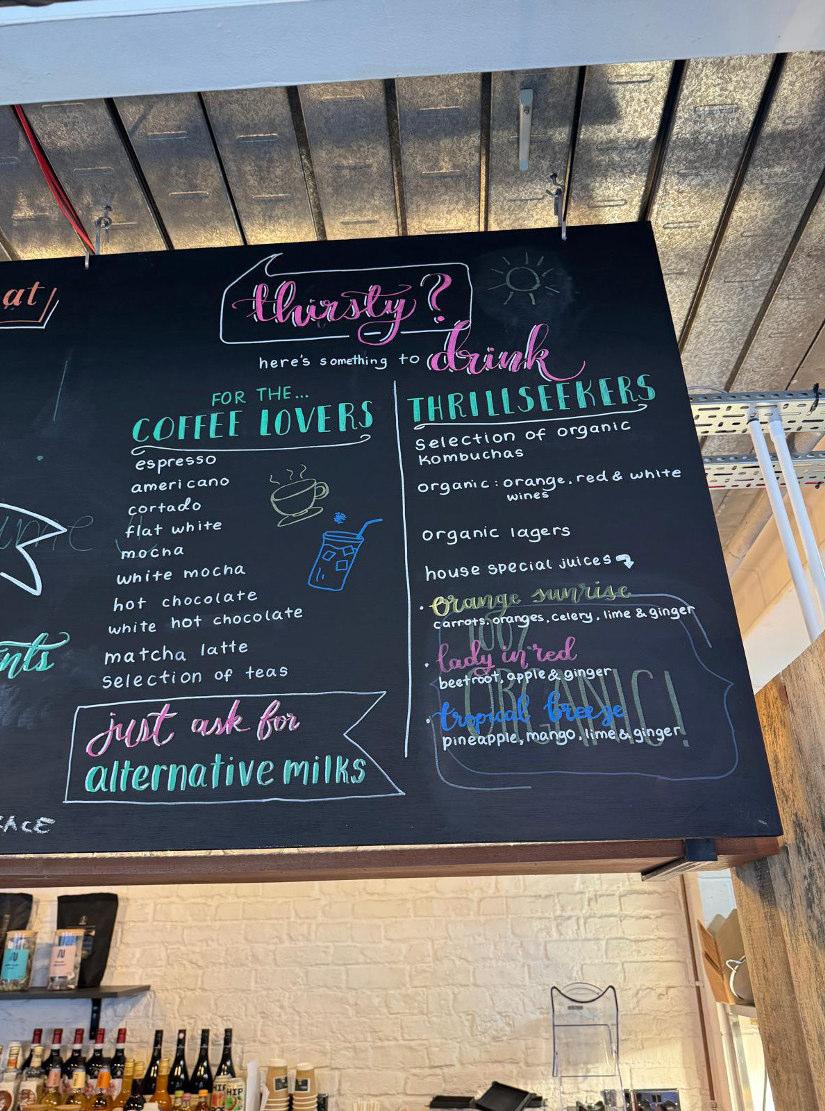 at
thirsty?
here's something to drink
FOR THE...
COFFEE LOVERS
espresso
americano
cortado
flat white
mocha
white mocha
hot chocolate
white hot chocolate
matcha latte
selection of teas
just ask for
alternative milks
THRILLSEEKERS
Selection of organic
Kombuchas
organic: orange, red & white
wines
organic lagers
house special juices
orange sunrise
carrots, oranges, celery, lime & ginger
lady in red
beetroot, apple & ginger
tropical breeze
pineapple, mango, lime & ginger
100%
ORGANIC!
nts